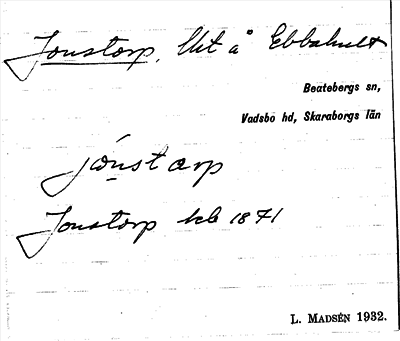 Jonstorp, lht å Ebbahult
Beatebergs sn,
Vadsbo hd, Skaraborgs län
jónstærp
Jonstorp kb 1871
L. MADSÉN 1932.